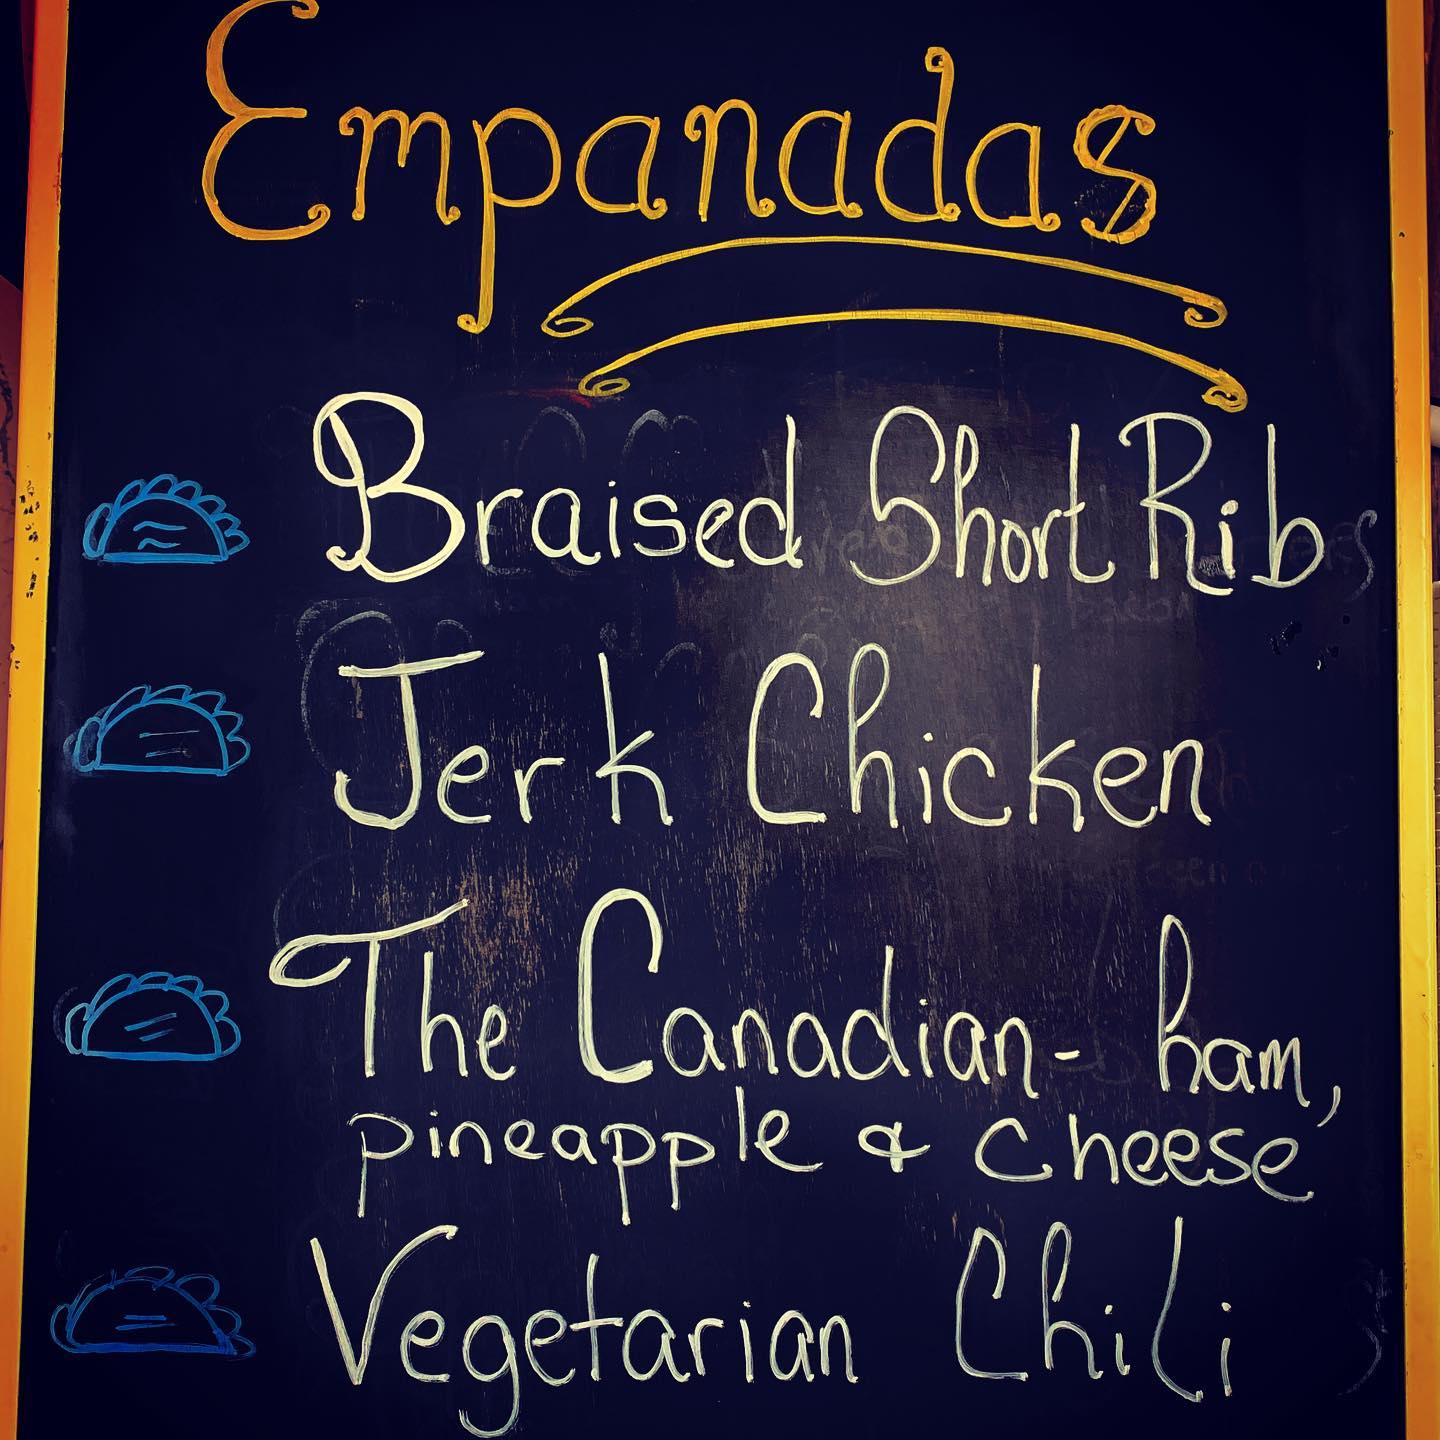 Empanadas
Braised Short Rib
Jerk Chicken
The Canadian - ham,
pineapple & cheese
Vegetarian Chili